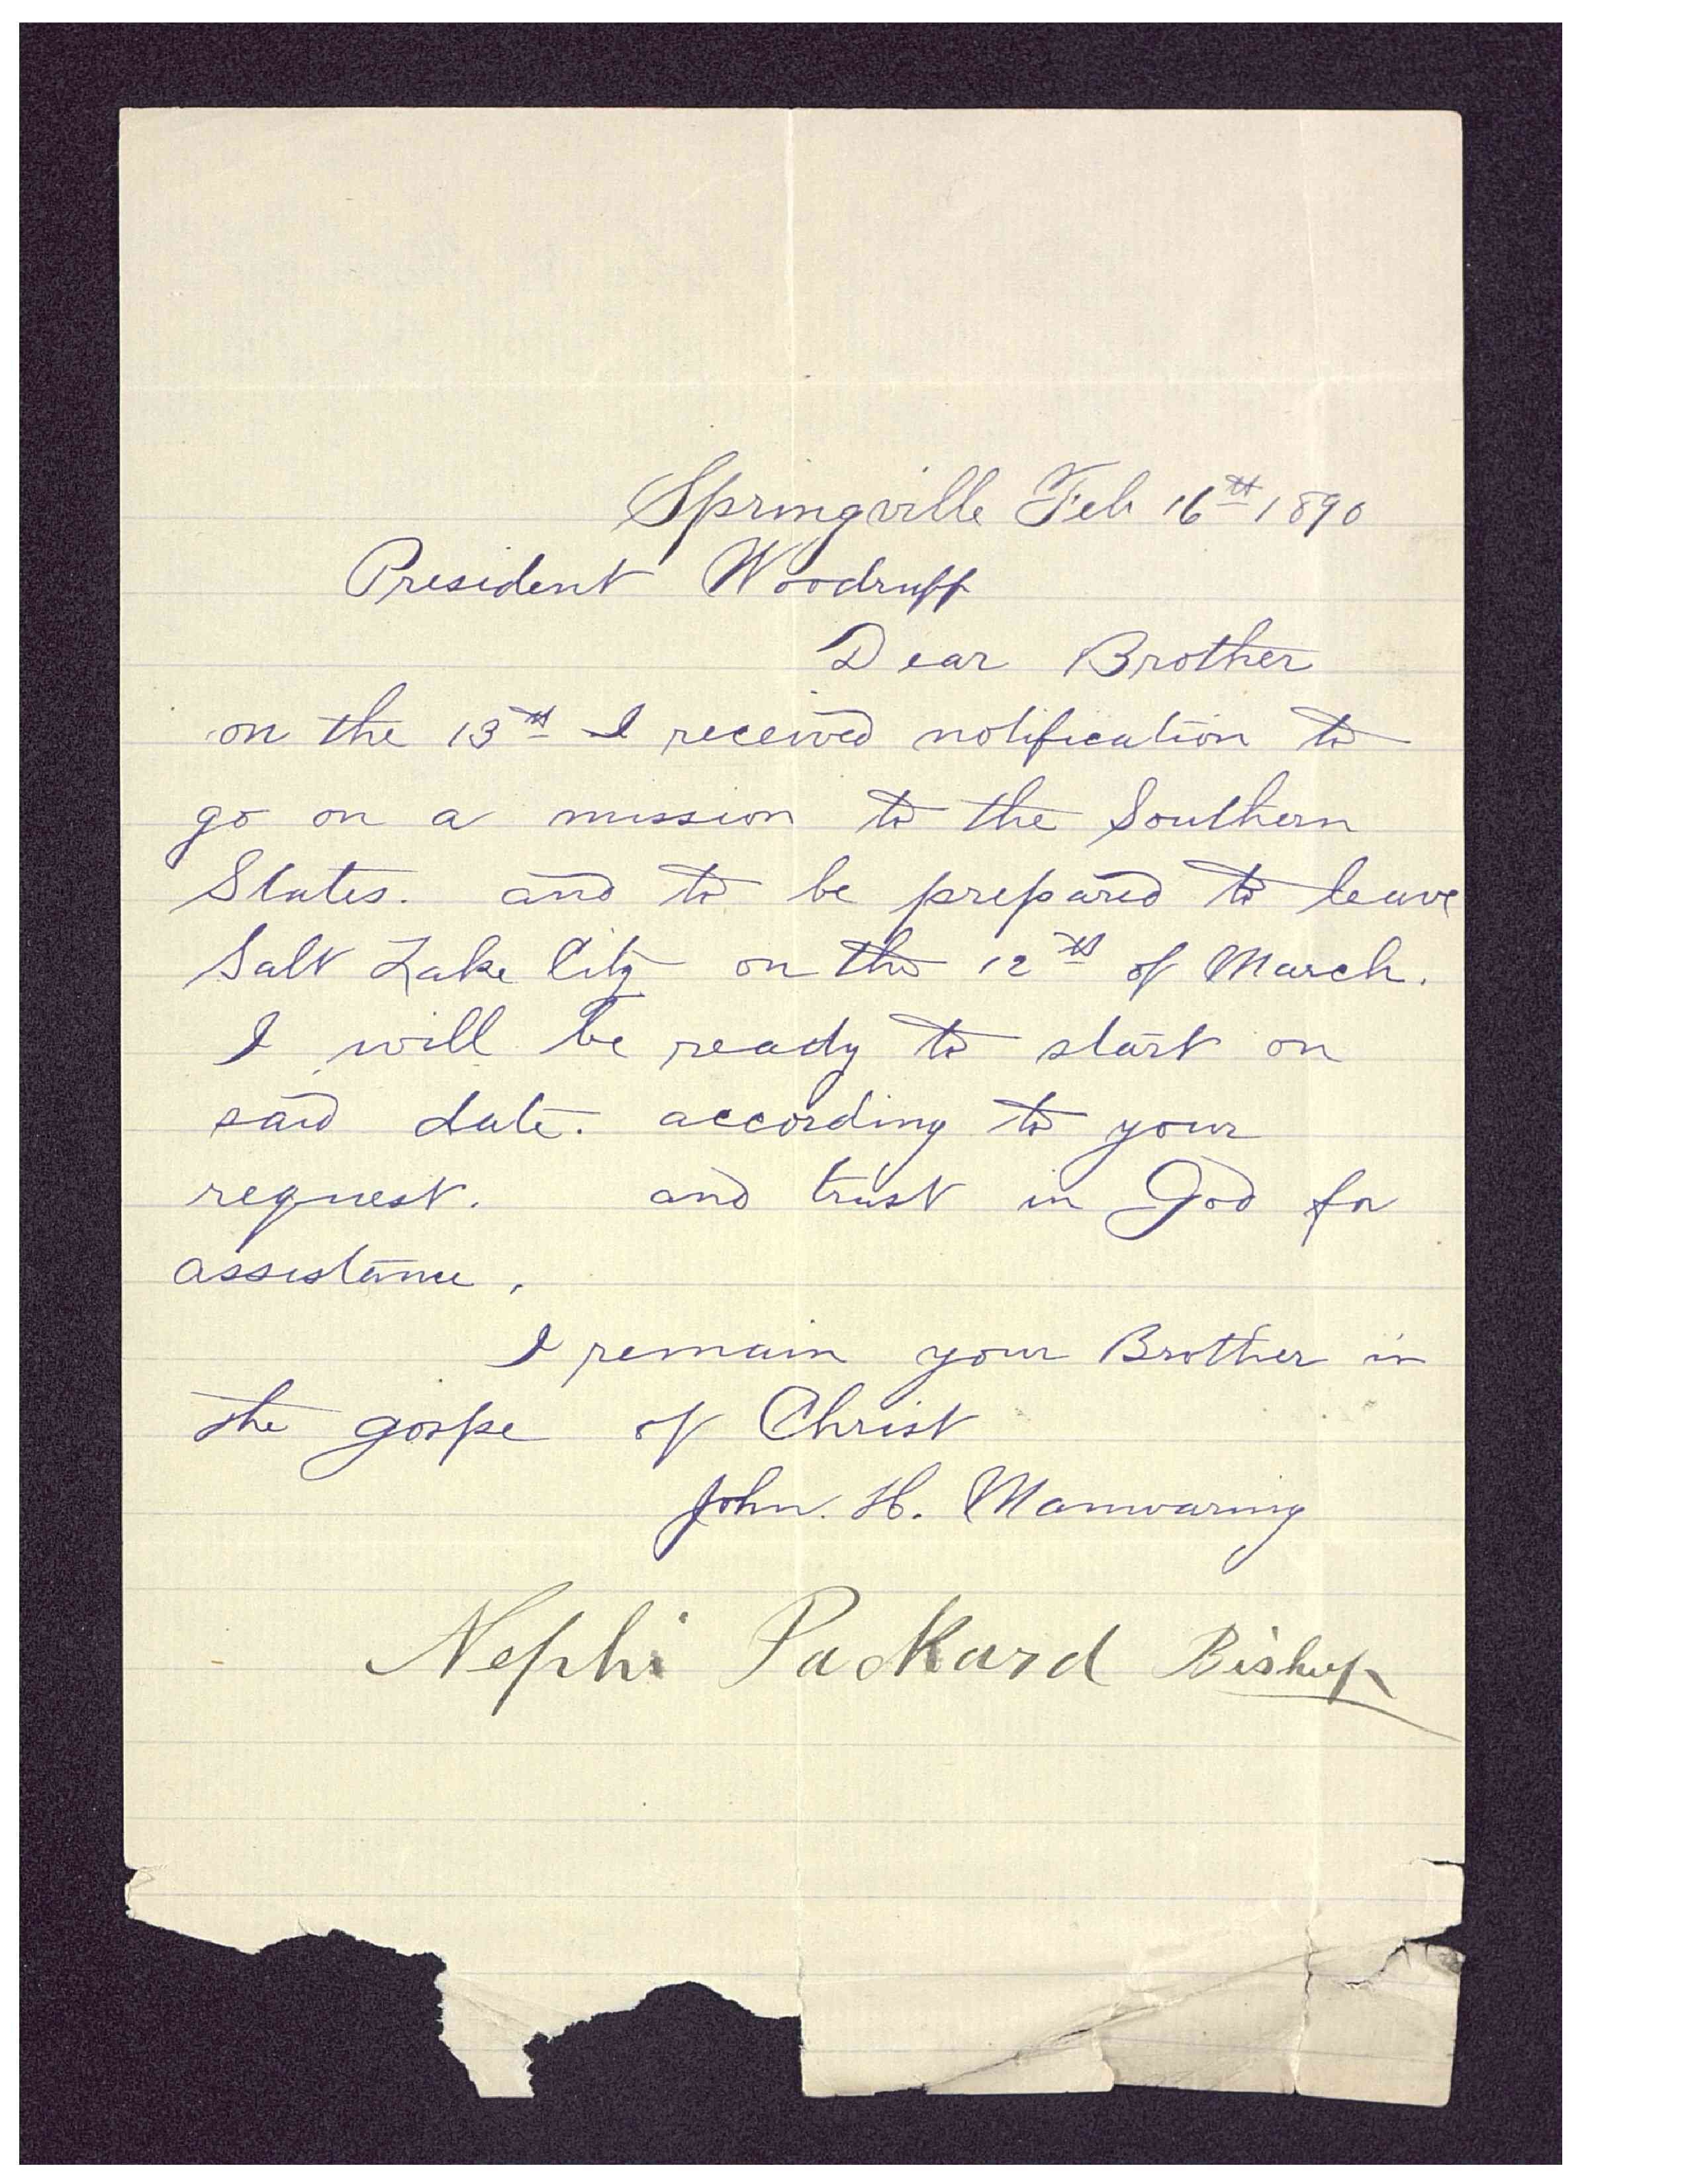 Springville Feb 16th 1890
President Woodruff
Dear Brother
on the 13th I received notification to
go on a mission to the Southern
States. and to be prepared to leave
Salt Lake City on the 12th of March.
I will be ready to start on
said date. according to your
request. and trust in God for
assistance.
I remain your Brother in
the gospe of Christ
John. H. Manwaring
Nephi Packard Bishop